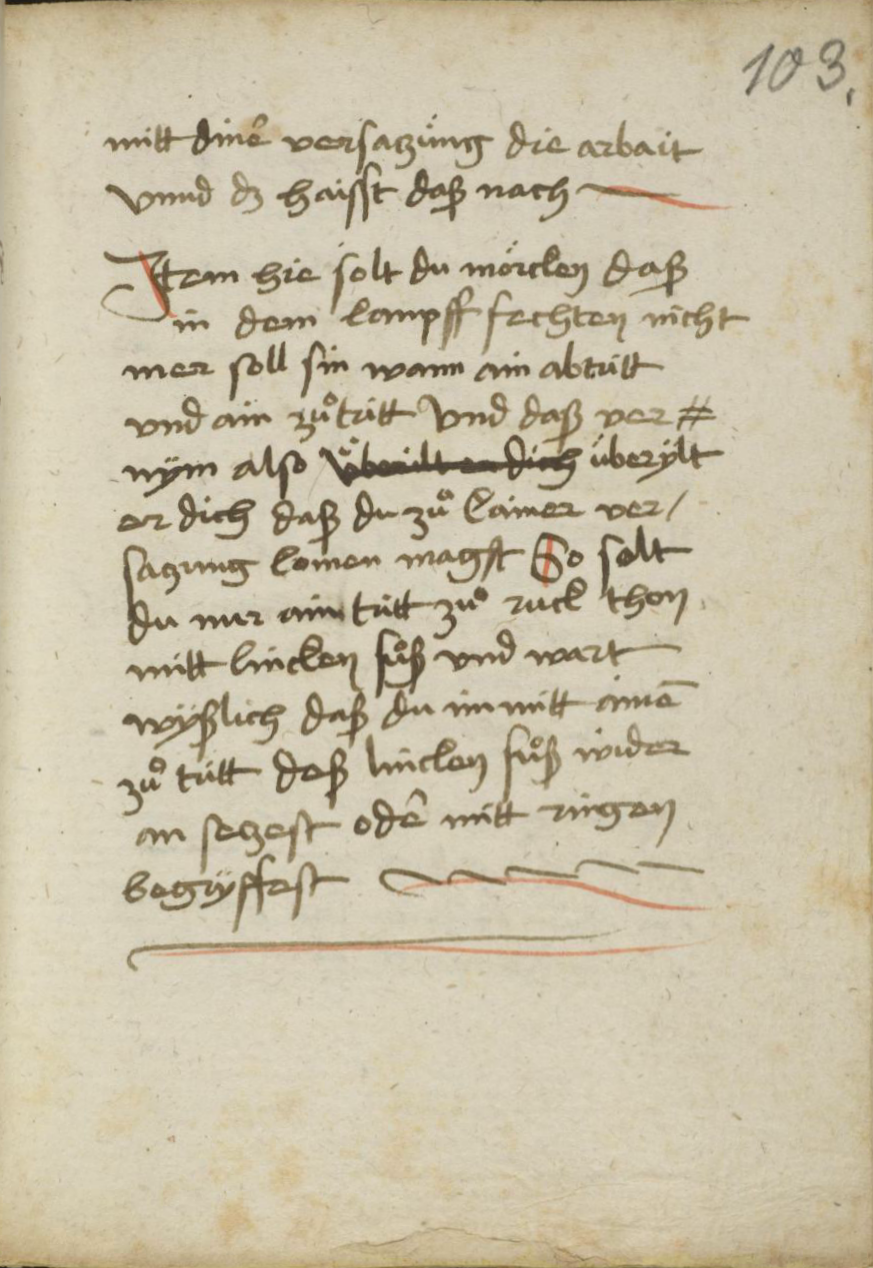 103.
mitt dinē versaczu̇ng die arbait
Vnnd dz haisst daß nach
Item hie solt du mörcken daß
in dem kampff fechten nicht
mer soll sin wann ain abtritt
vnd ain zů tritt Vnd daß ver⸗
nÿm also überÿlt
er dich daß du zů kainer ver/
saczung komen magst So solt
du nur ain tritt zů ruck thon
mitt lincken fůß vnd wart
wÿßlich daß du im mitt aimē
zů tritt deß lincken fůß wider
an seczest odē mitt ringen
begrÿffest